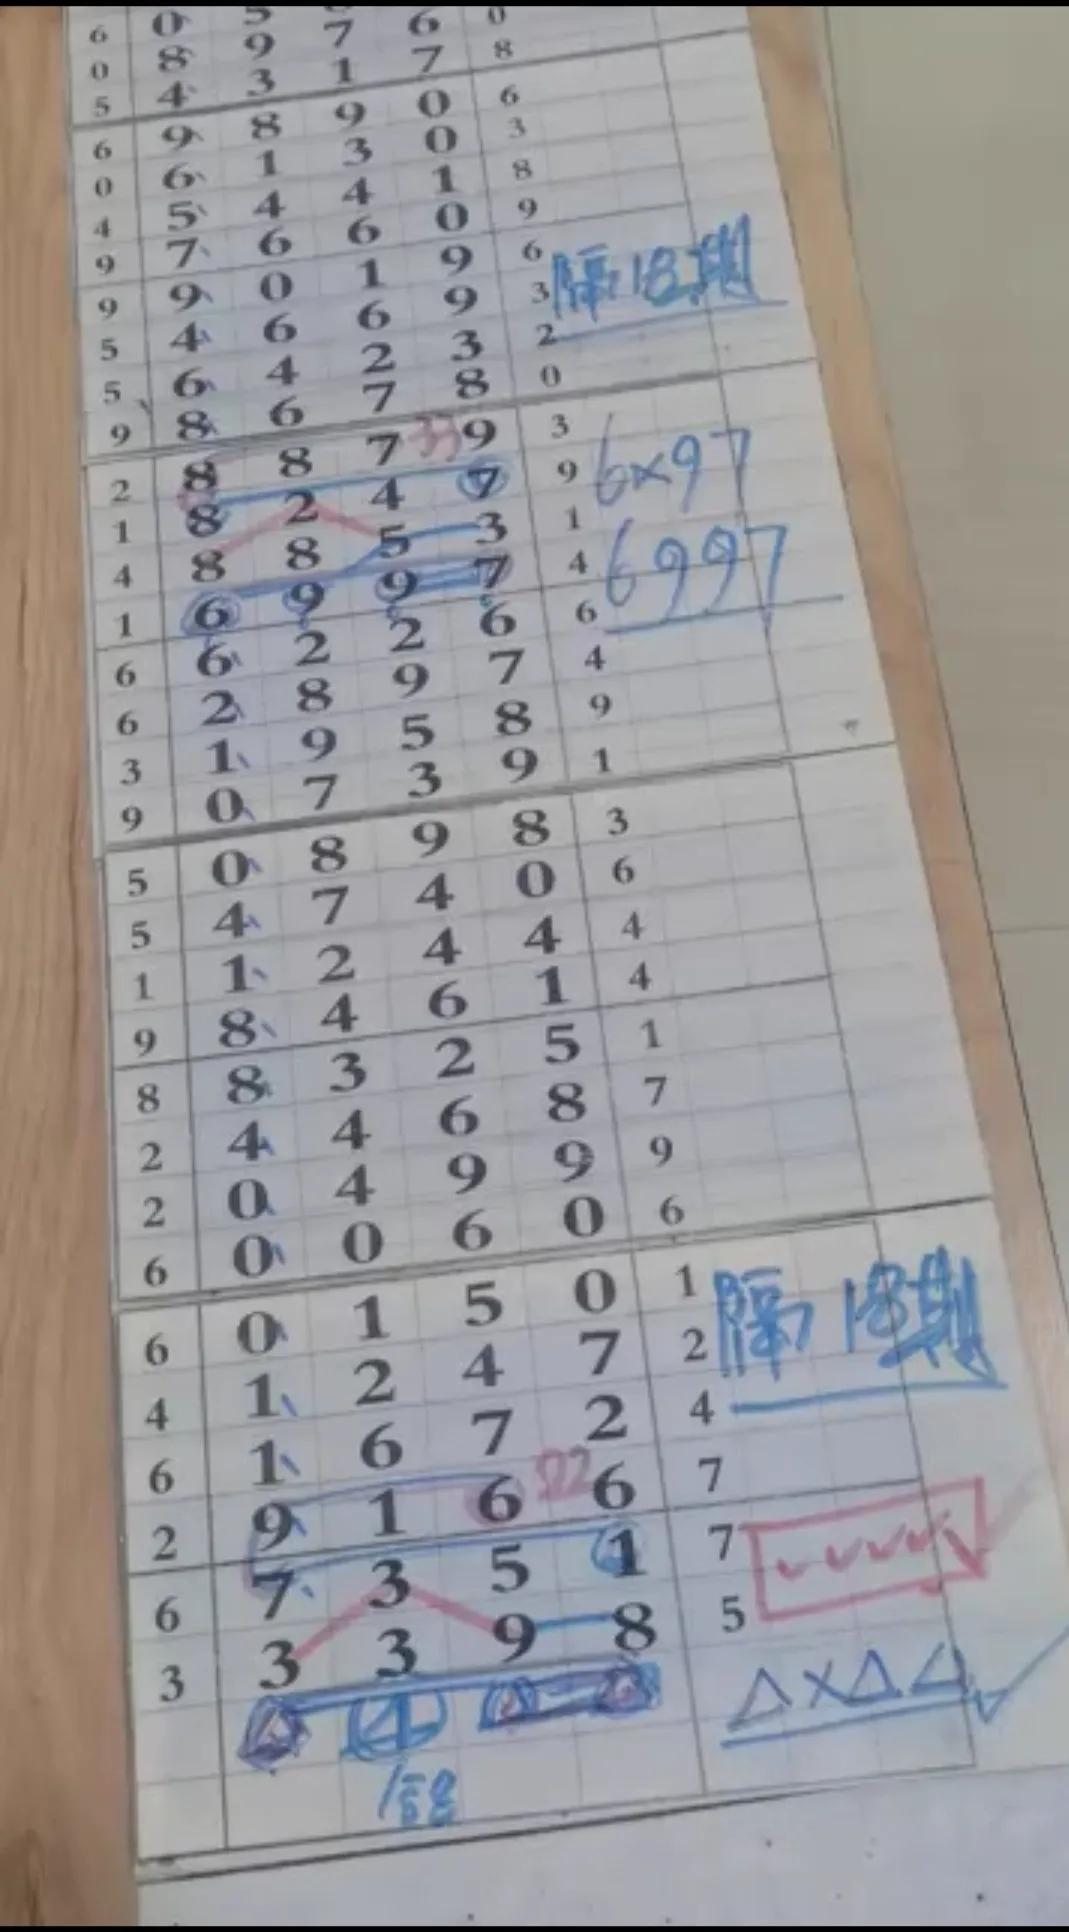 6 0 5 6 0
0 8 9 7 6 8
5 4 3 1 7
6 9 8 9 0 6
0 6 1 3 0 3
4 5 4 4 1 8
9 7 6 6 0 9
9 9 0 1 9 6
隔18期
5 4 6 6 9 3
5 6 4 2 3 2
9 8 6 7 8 0
2 8 8 7 9 3
1 8 2 4 7 9
6×97
4 8 8 5 3 1
1 6 9 9 7 4
6997
6 6 2 2 6 6
6 2 8 9 7 4
3 1 9 5 8 9
9 0 7 3 9 1
5 0 8 9 8 3
5 4 7 4 0 6
1 1 2 4 4 4
9 8 4 6 1 4
8 8 3 2 5 1
2 4 4 6 8 7
2 0 4 9 9 9
6 0 0 6 0 6
6 0 1 5 0 1
隔18期
4 1 2 4 7 2
6 1 6 7 2 4
2 9 1 6 6 7
6 7 3 5 1 7
3 3 3 9 8 5
△×△△